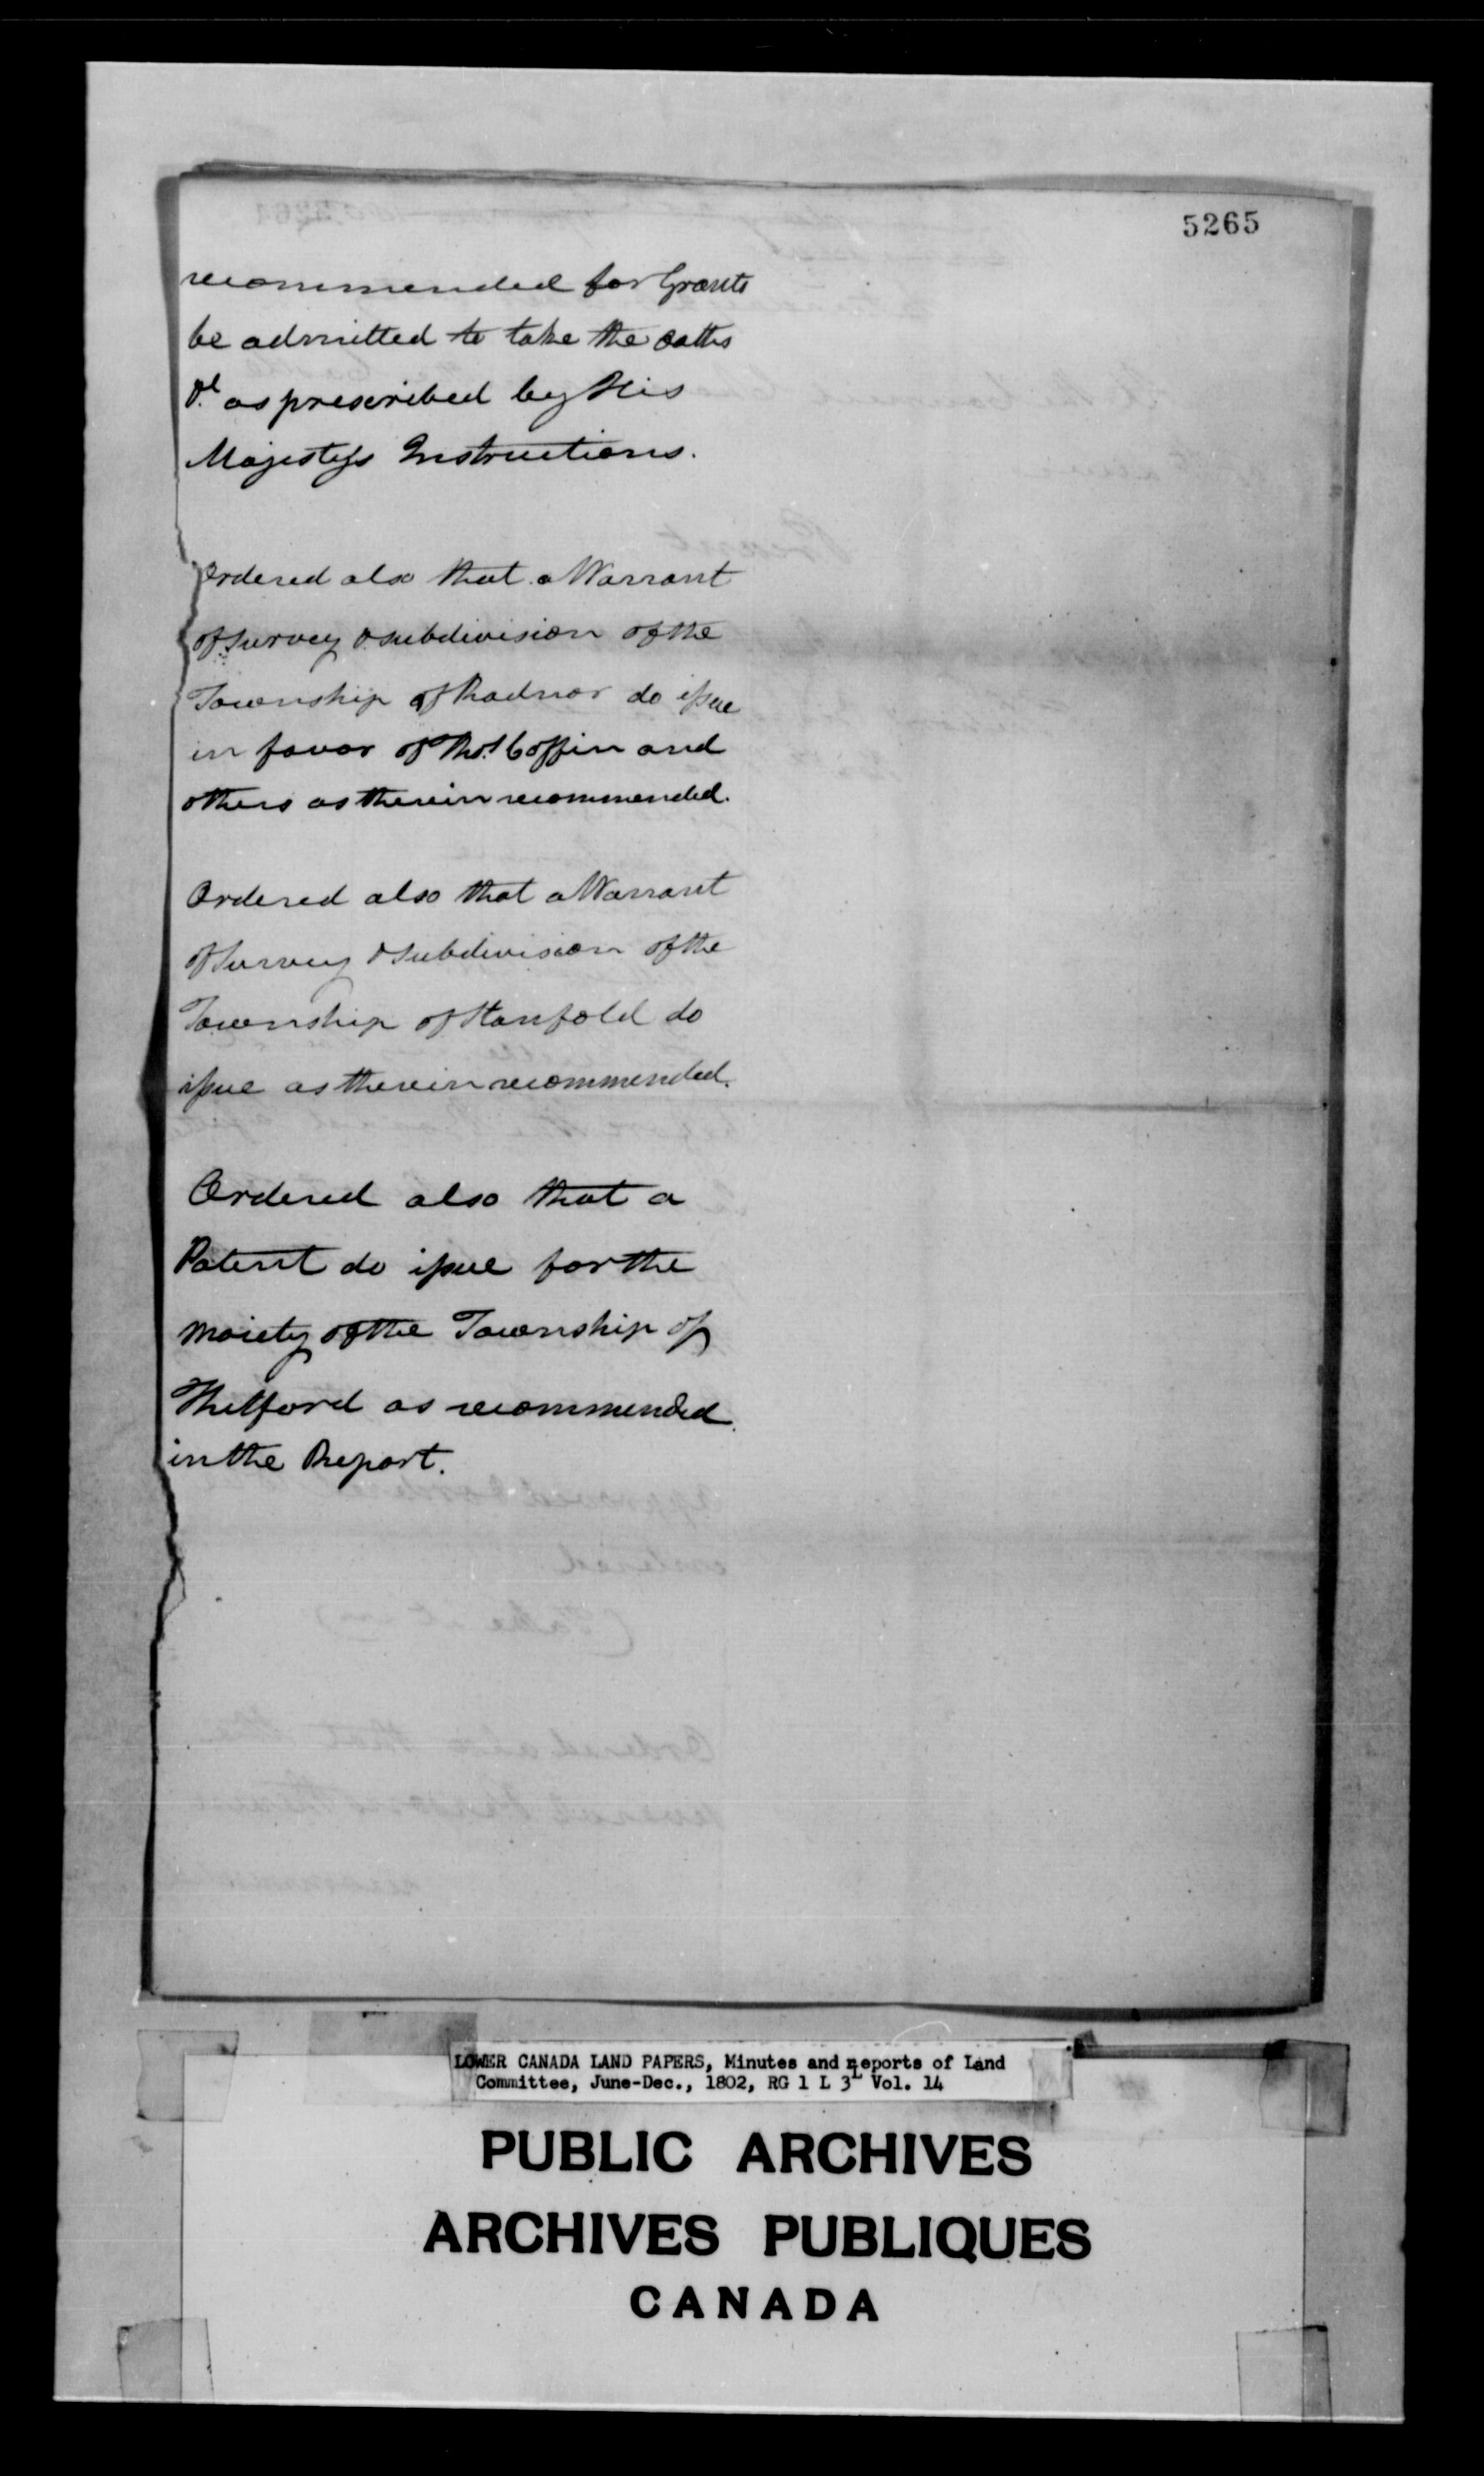 5265
recommended for Grants
be admitted to take the oaths
&c. as prescribed by His
Majesty's Instructions.
Ordered also that a Warrant
of Survey & subdivision of the
Township of Radnor do issue
in favor of Thos. Coffin and
others as therein recommended.
Ordered also that a Warrant
of Survey & subdivision of the
Township of Stanfold do
issue as therein recommended.
Ordered also that a
Patent do issue for the
moiety of the Township of
Thetford as recommended
in the Report.
LOWER CANADA LAND PAPERS, Minutes and Reports of Land
Committee, June-Dec., 1802, RG 1 L 3L Vol. 14
PUBLIC ARCHIVES
ARCHIVES PUBLIQUES
CANADA